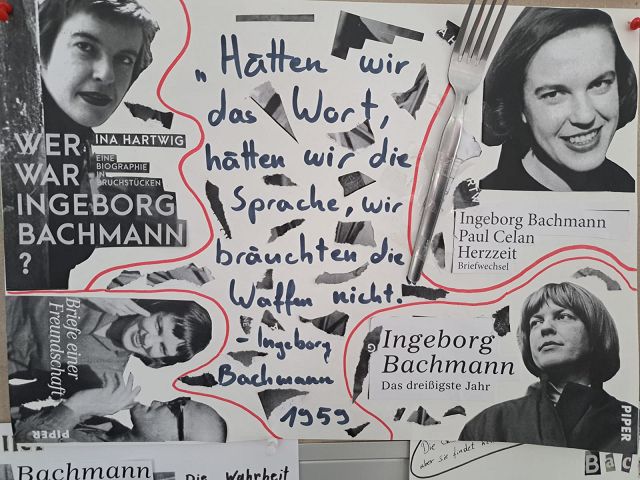 WER
WAR
INGEBORG
BACHMANN
?
INA HARTWIG
EINE
BIOGRAPHIE
IN
BRUCHSTÜCKEN
„Hätten wir
das Wort,
hätten wir die
Sprache, wir
bräuchten die
Waffen nicht.
- Ingeborg
Bachmann
1959
Ingeborg Bachmann
Paul Celan
Herzzeit
Briefwechsel
Briefe einer
Freundschaft
PIPER
Ingeborg
Bachmann
Das dreißigste Jahr
PIPER
Bachmann
Die Wahrheit
Die
aber sie findet
Bac